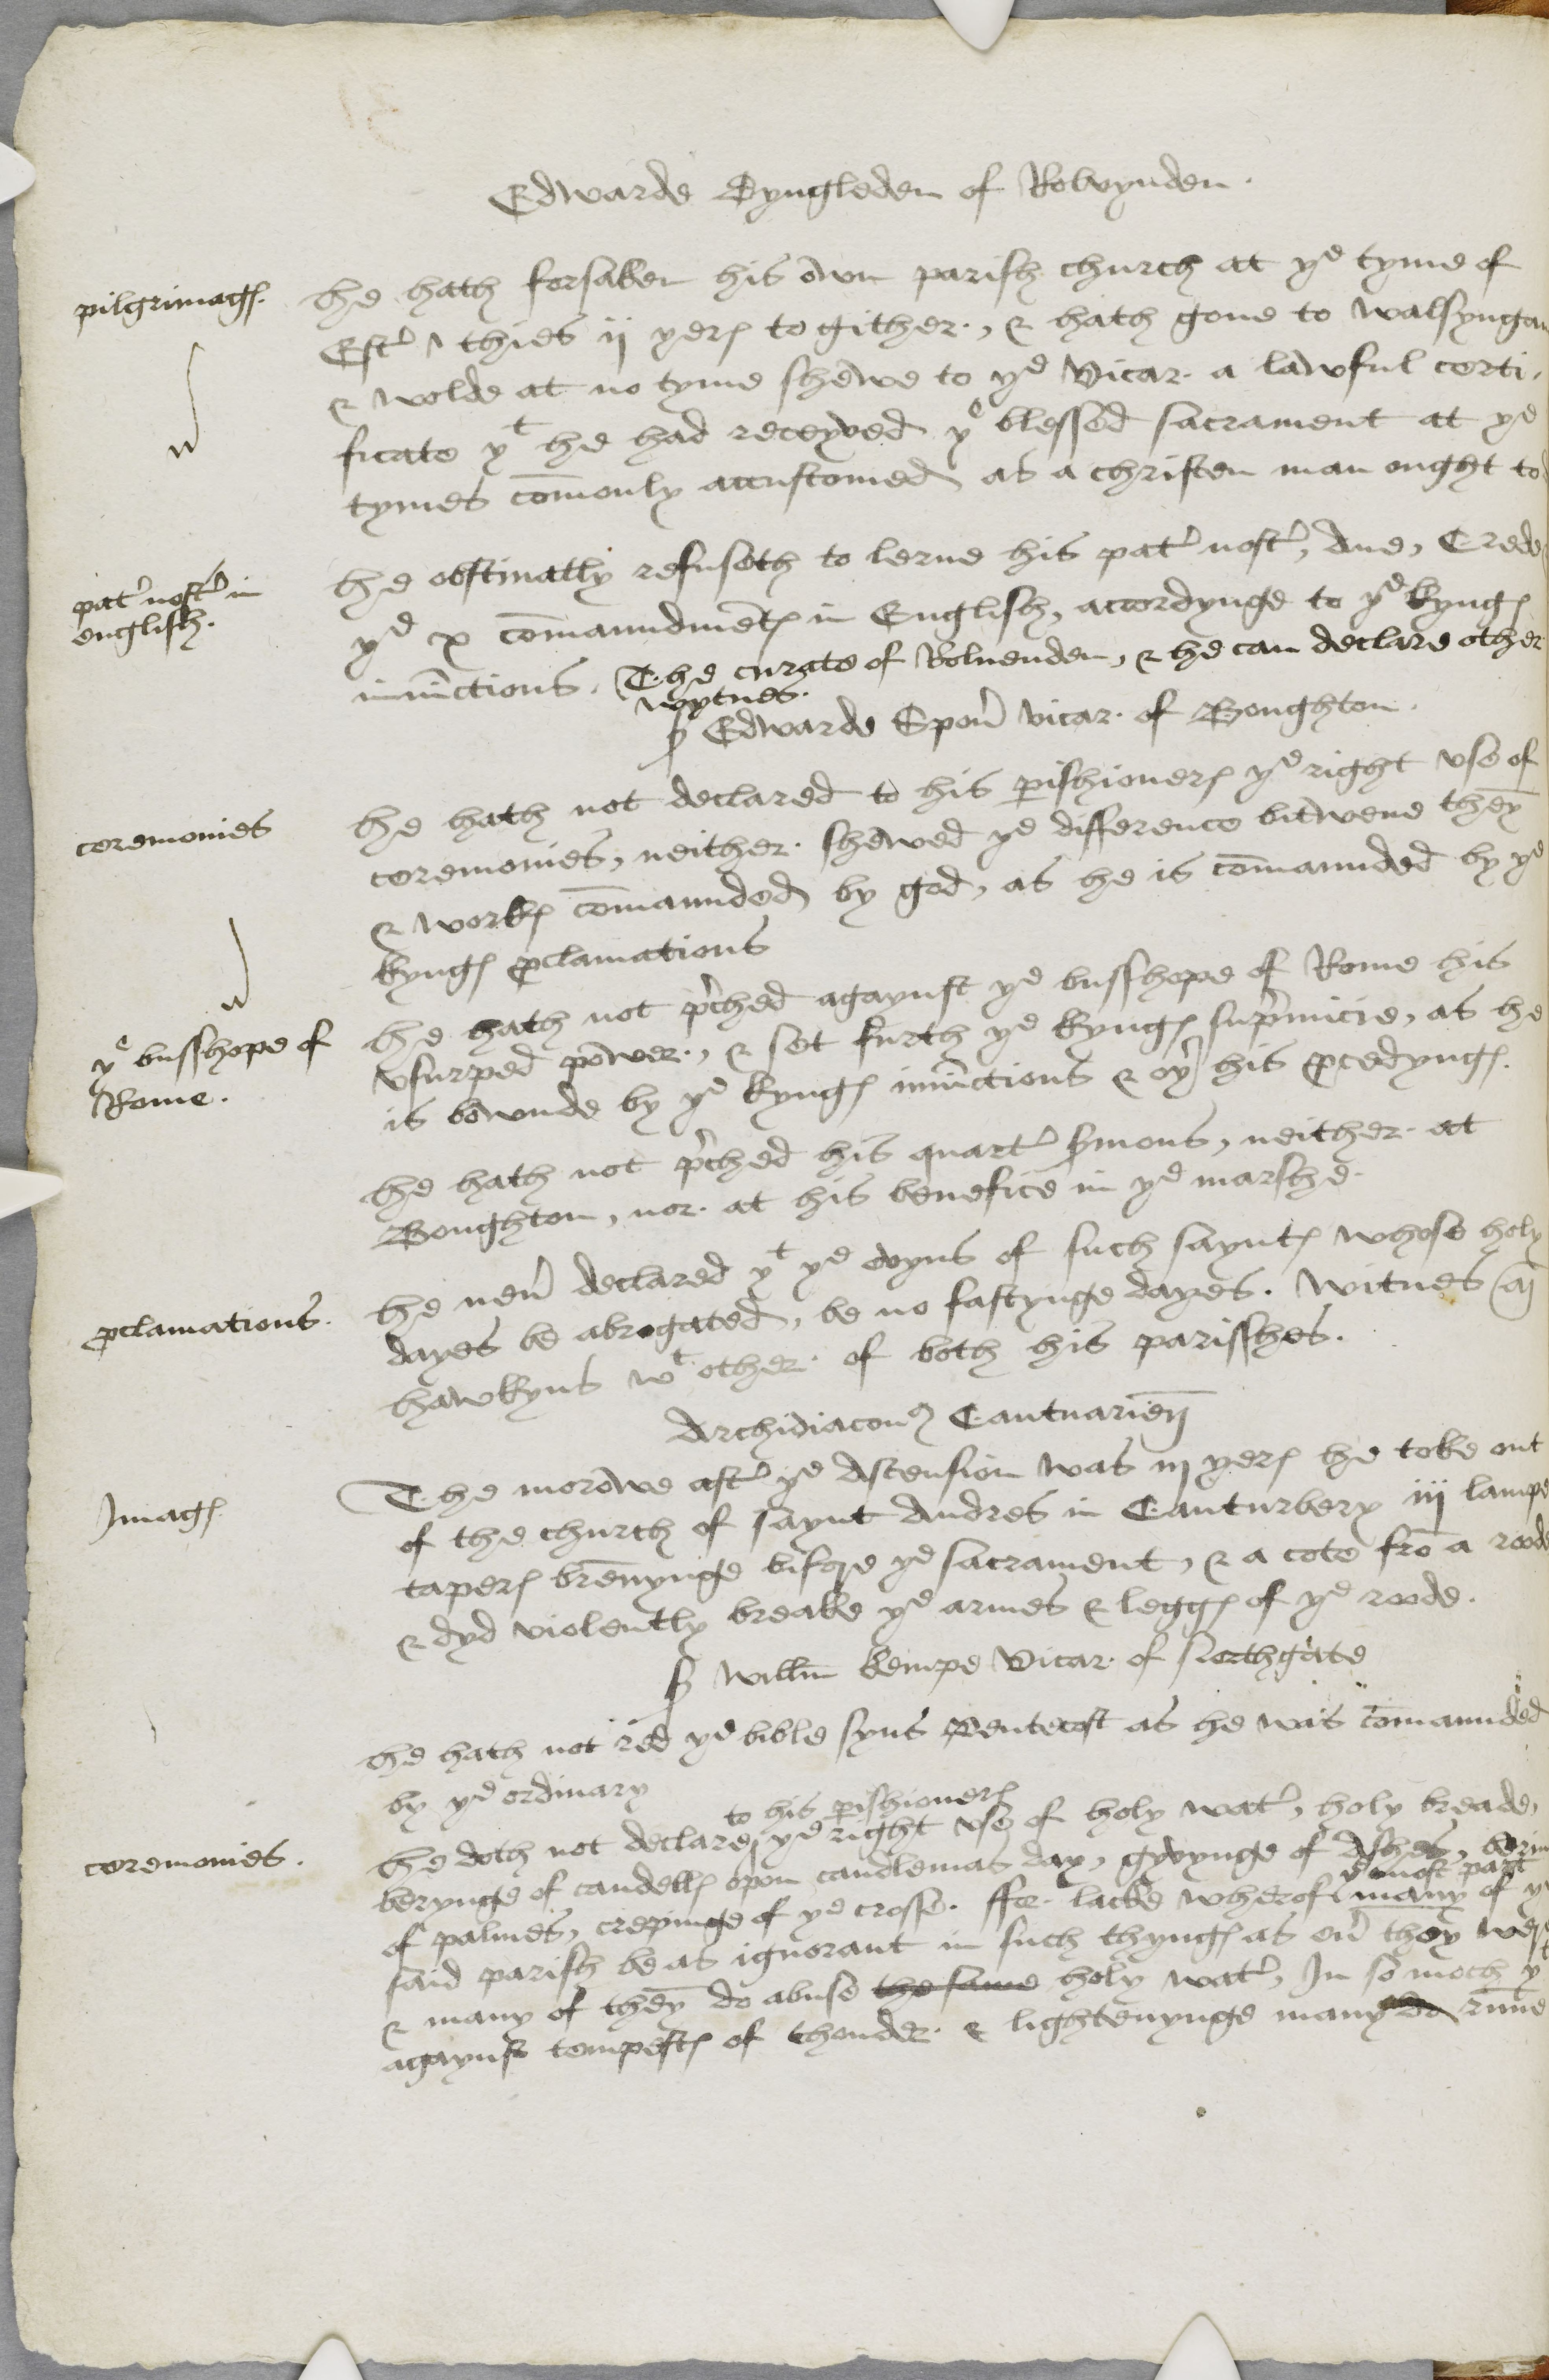 Edwarde Dyngleden of Rolvynden.
pilgrimages.
he hath forsaken his own parish church at ye tyme of
Ester thies ij yeres to gither., & hath gone to walsyngam
& wolde at no tyme shewe to ye Vicar. a lawful certi,
ficate yt he had receyved ye blessed sacrament at ye
tymes comonly accustomed as a christen man ought to
pater noster in
english.
he obstinatly refuseth to lerne his pater noster, Ave, Crede
ye x comaundmentes in English, accordynge to ye kynges
iniunctions. The curate of Rolvenden, & he can declare other
wytnes.
S Edwarde Sponer vicar. of Boughton.
ceremonies
he hath not declared to his parishioners ye right use of
ceremonies, neither. shewed ye difference bitwene theym
& workes comaunded by god, as he is comaunded by ye
kynges proclamations
ye busshope of
Rome.
he hath not preched agaynst ye busshope of Rome his
vsurped power., & set furth ye kynges supremicie, as he
is bownde by ye kynges iniunctions & oyer his procedynges.
he hath not preched his quarter sermons, neither. at
Boughton, nor. at his benefice in ye marshe.
proclamations.
he never declared yt ye evyns of such sayntes whose holy
dayes be abrogated, be no fastynge dayes. Witnes
hawkyns wt other. of both his parisshes.
Archidiaconus Cantuarien
Images
The morowe after ye Ascension was iij yeres he toke out
of the church of saynt Andres in Canturbery iiij lampe
tapers brennynge before ye sacrament, & a cote fro a roode
& dyd violently breake ye armes & legges of ye roode.
S Willm kempe Vicar. of Northgate
he hath not red ye bible syns Pentecost as he was comaunded
by ye ordinary
ceremonies.
he doth not declare to his parishioners ye right use of holy water, holy breade,
berynge of candelles opon candlemas day, gyvynge of Ashes, berin
of palmes, crepinge of ye crosse. ffor. lacke wherof many ye most part of ye
said parish be as ignorant in such thynges as ever they were
& many of theym do abuse the same holy water, In so moch yt
agaynst tempestes of thonder. & lightenynge many do runne